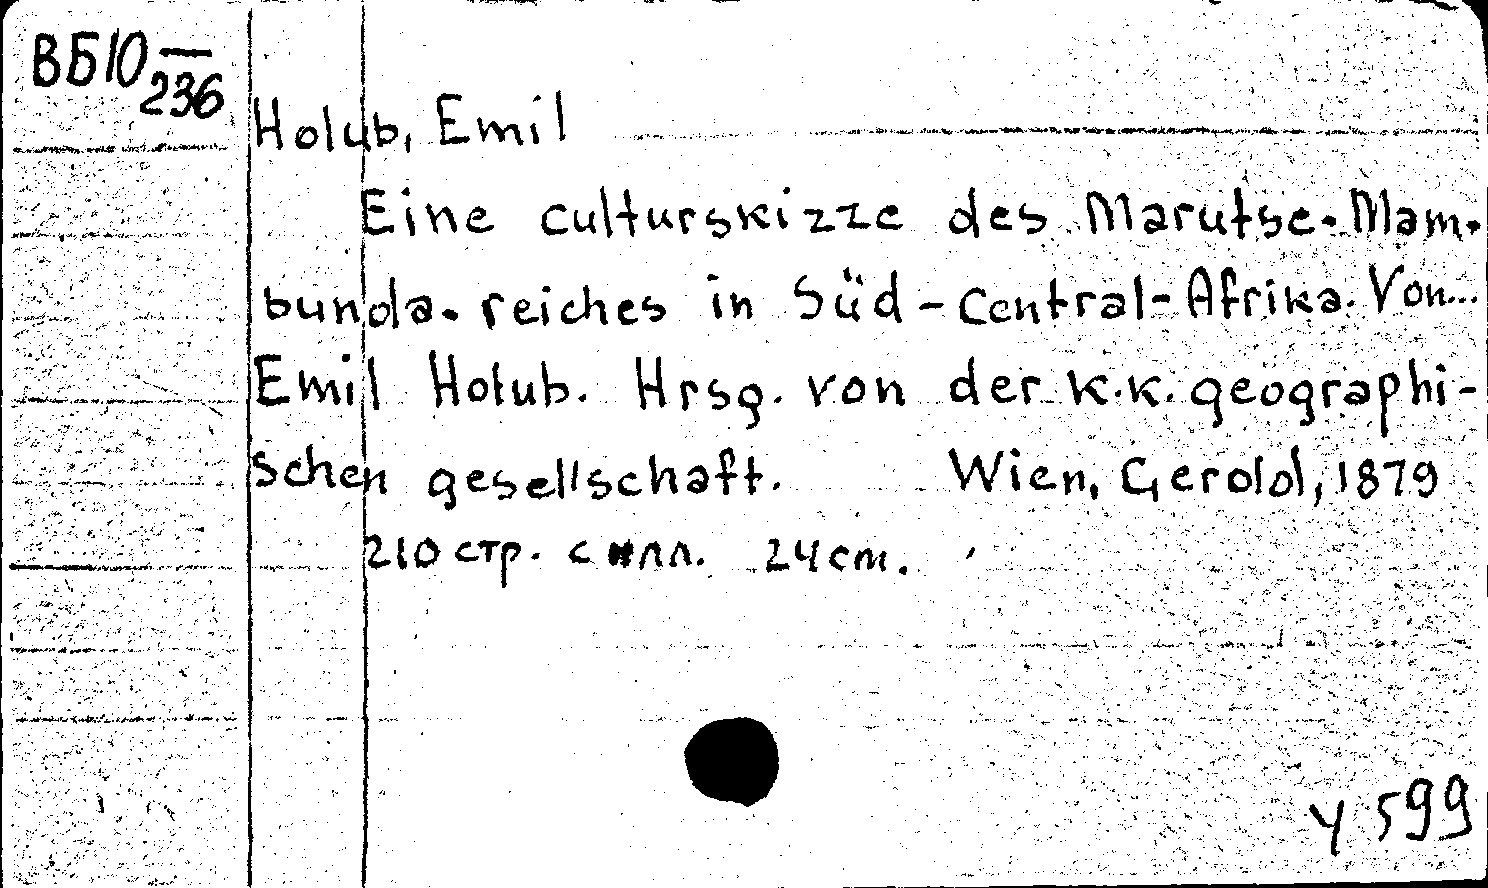 ВБ10 —
236
Holub, Emil
Eine culturskizze des Marutse-Mam-
bunda-reiches in Süd-Central-Afrika. Von...
Emil Holub. Hrsg. von der k.k. geographi-
schen gesellschaft. Wien, Gerold, 1879
210 стр. с илл. 24 cm.
У 599